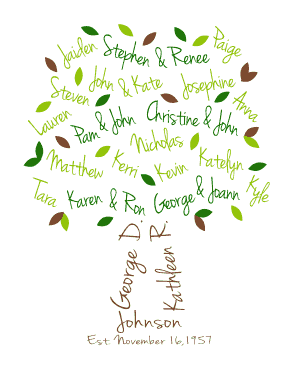 Jaiden Stephen & Renee Paige
Steven John & Kate Josephine
Lauren Pam & John Christine & John Anna
Nicholas
Matthew Kerri Kevin Katelyn
Tara Karen & Ron George & Joann Kyle
George D.
Kathleen R.
Johnson
Est. November 16, 1957